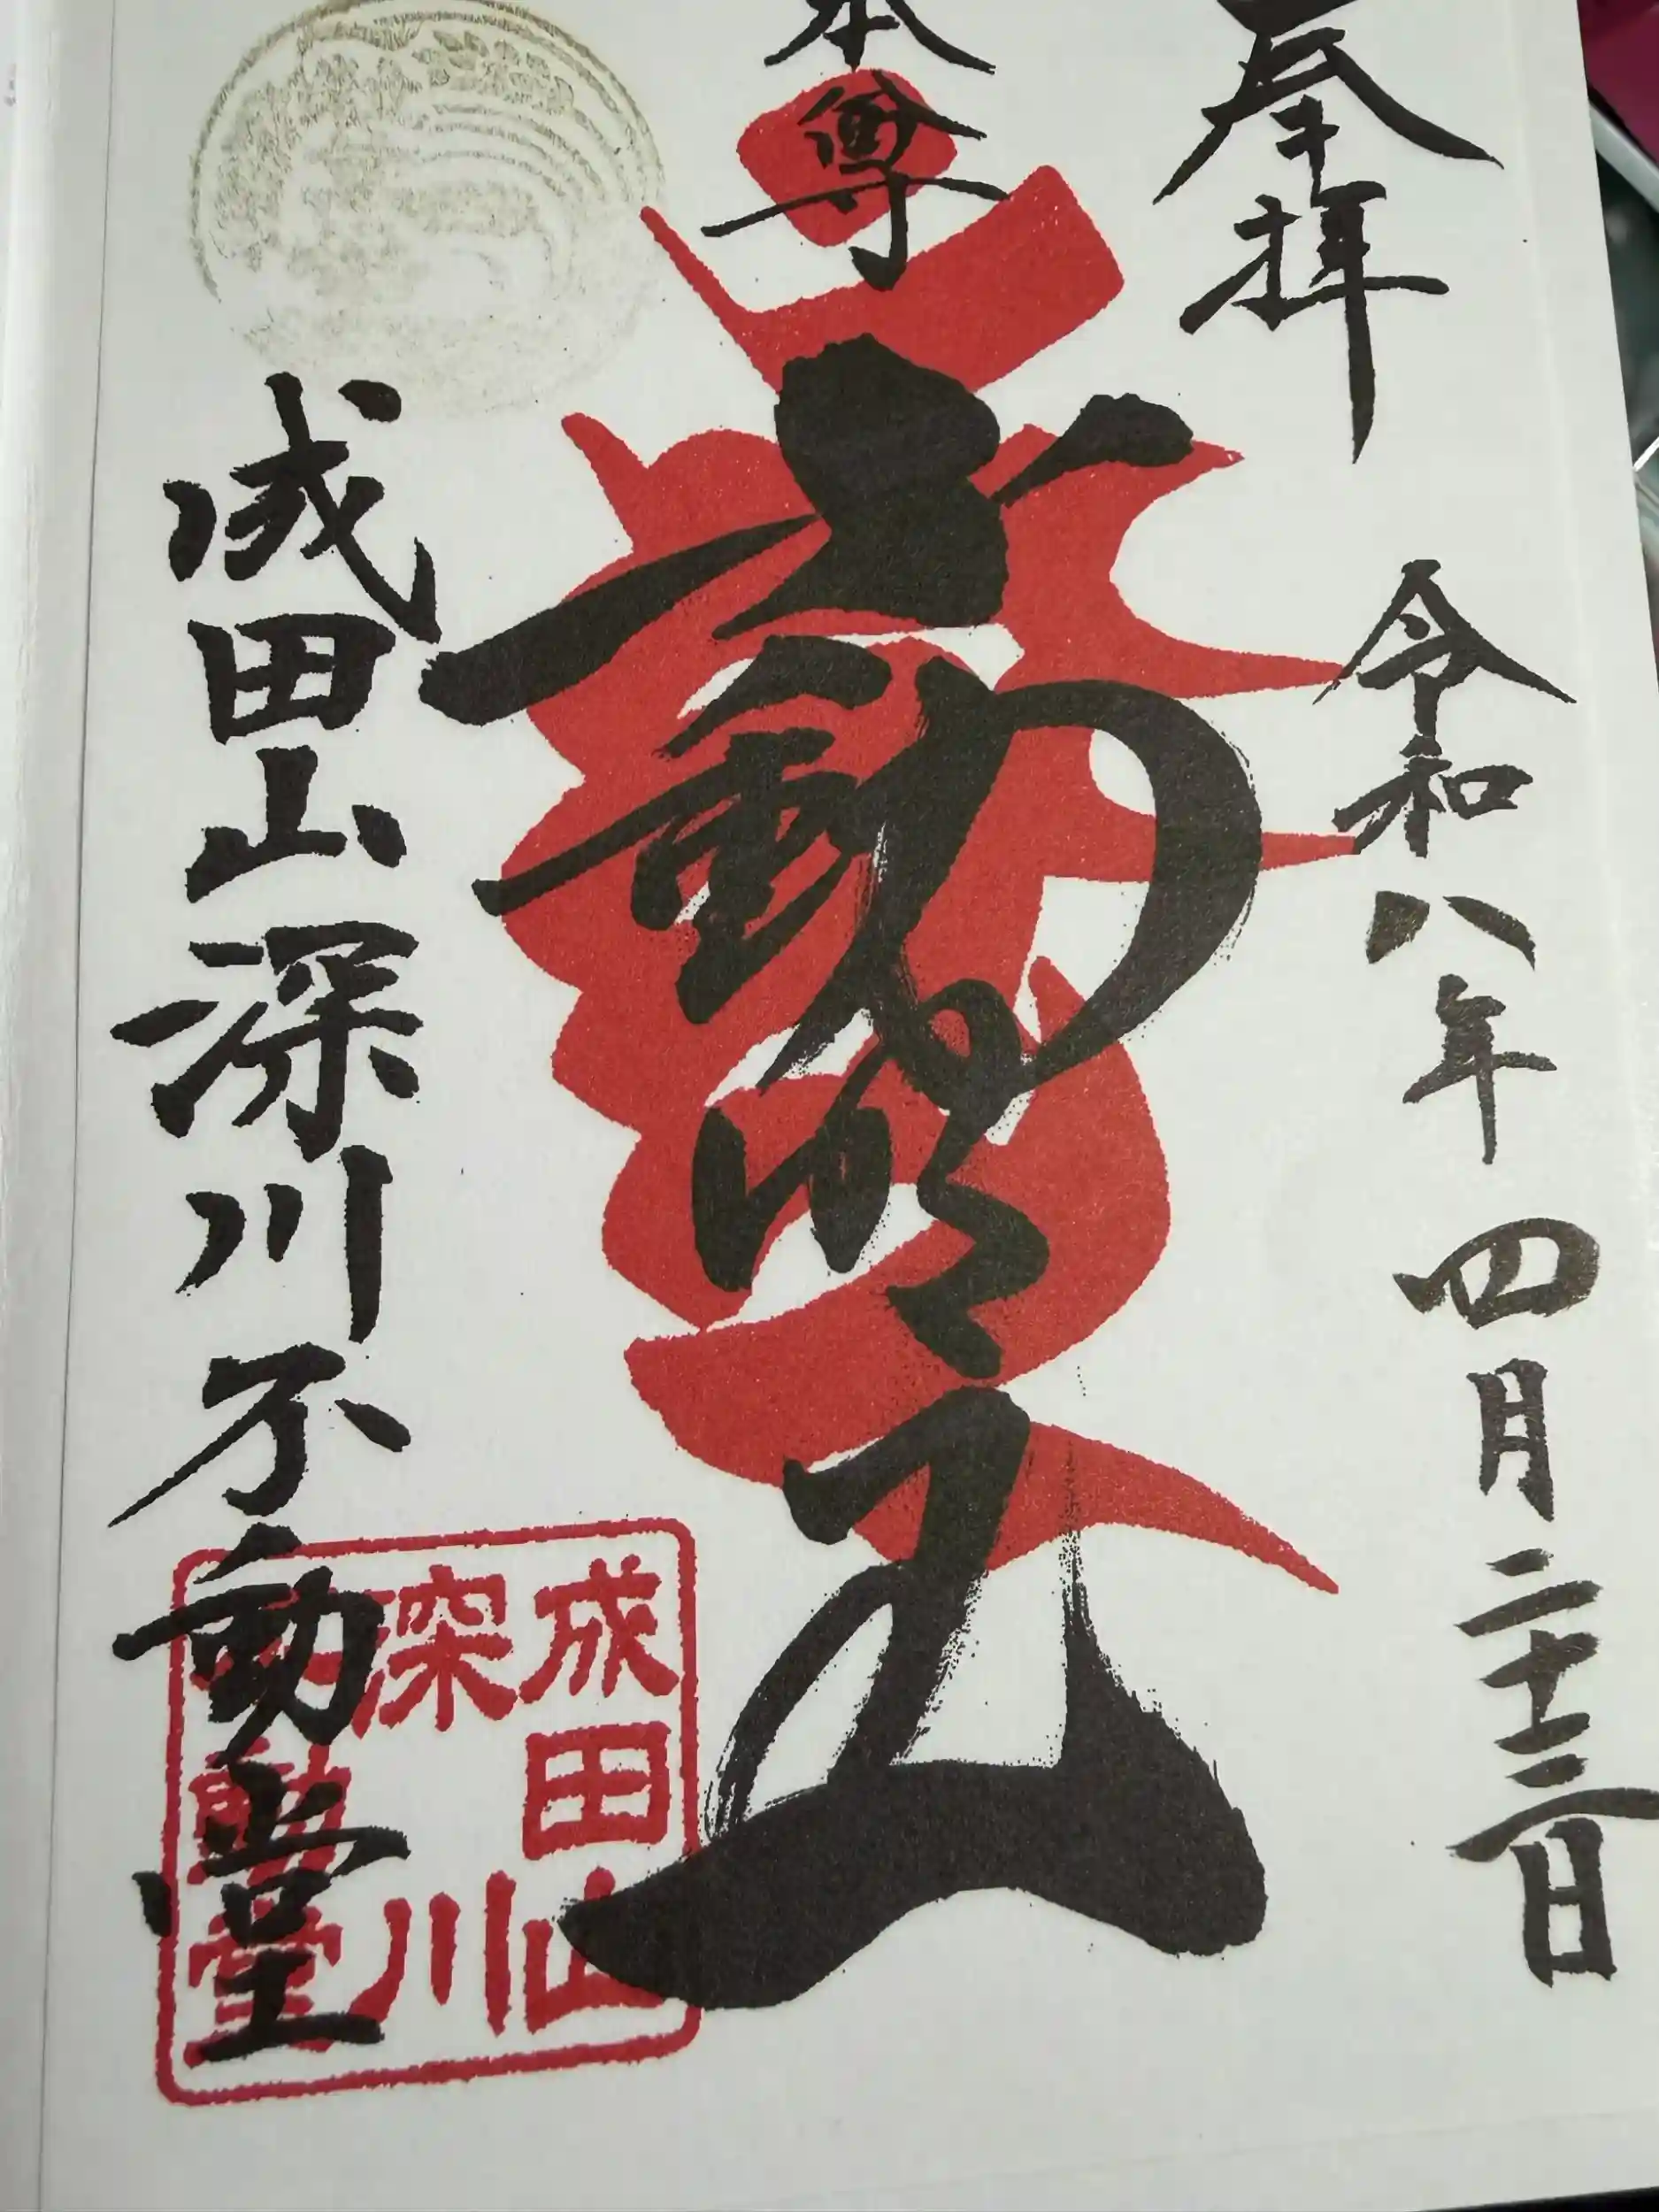 奉拝
令和八年 四月二十三日
本尊
不動明王
成田山深川不動堂
成田山
深川
不動堂